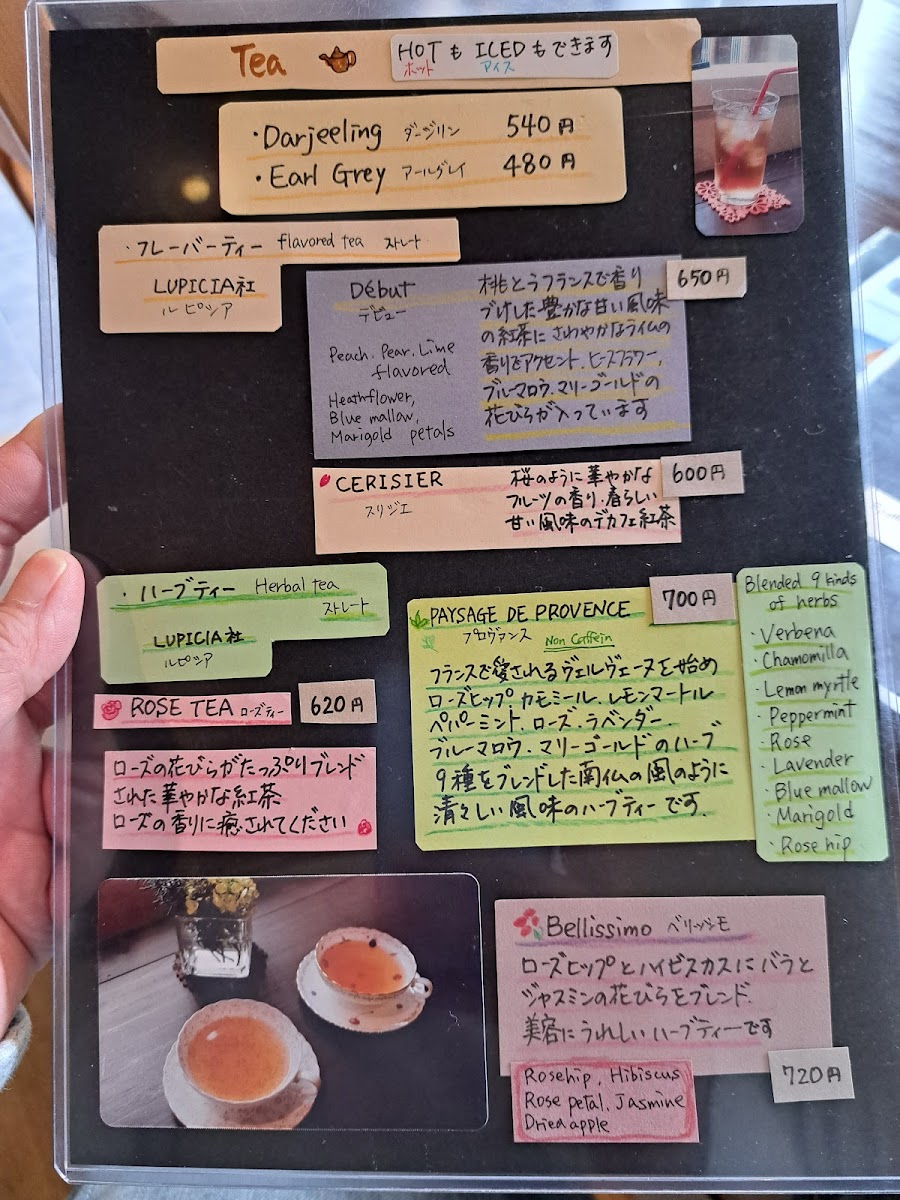 Tea HOTも ICEDもできます
ホット アイス
・Darjeeling ダージリン 540円
・Earl Grey アールグレイ 480円
・フレーバーティー flavored tea ストレート
LUPICIA社
ルピシア
Début
デビュー
Peach. Pear. Lime
flavored
Heathflower,
Blue mallow,
Marigold petals
650円
桃とラフランスで香り
づけした豊かな甘い風味
の紅茶にさわやかなライムの
香りをアクセント. ヒースフラワー,
ブルーマロウ.マリーゴールドの
花びらが入っています
CERISIER
スリジエ
600円
桜のように華やかな
フルーツの香り・春らしい
甘い風味のデカフェ紅茶
・ハーブティー Herbal tea
ストレート
LUPICIA社
ルピシア
ROSE TEA ローズティー 620円
ローズの花びらがたっぷりブレンド
された華やかな紅茶
ローズの香りに癒されてください
PAYSAGE DE PROVENCE 700円
プロヴァンス Non Caffein
フランスで愛されるヴェルヴェーヌを始め
ローズヒップ カモミール. レモンマートル
ペパーミント. ローズ. ラベンダー.
ブルーマロウ. マリーゴールドのハーブ
9種をブレンドした南仏の風のように
清々しい風味のハーブティーです.
Blended 9 kinds
of herbs
・Verbena
・Chamomilla
・Lemon myrtle
・Peppermint
・Rose
・Lavender
・Blue mallow
・Marigold
・Rose hip
Bellissimo ベリッシモ
ローズヒップとハイビスカスにバラと
ジャスミンの花びらをブレンド.
美容にうれしいハーブティーです
720円
Rosehip. Hibiscus
Rose petal. Jasmine
Dried apple